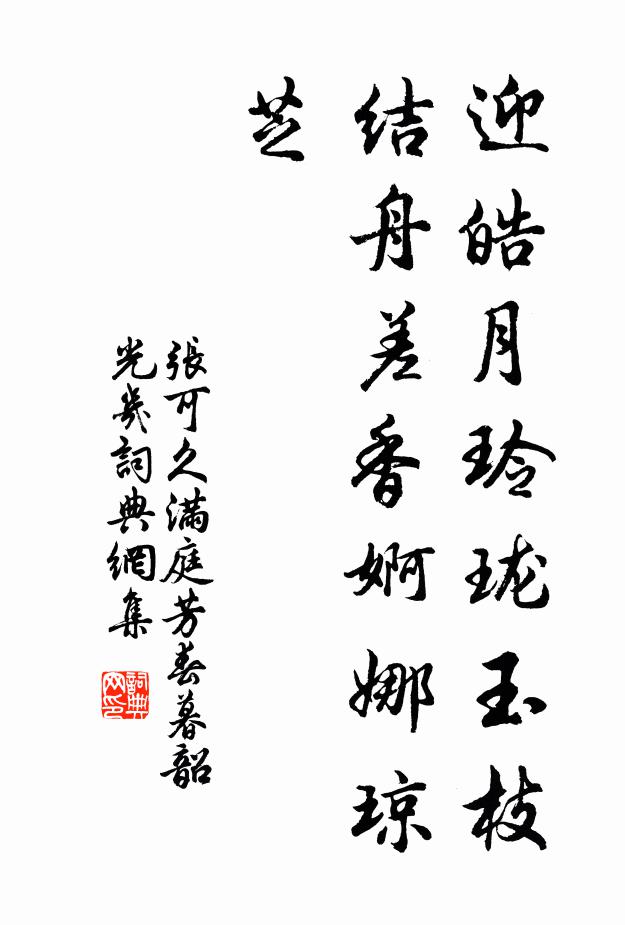 迎皓月玲珑玉枝
结舟差香婀娜琼
芝
張可久满庭芳春暮韶
光幾詞典網集
詞典网印